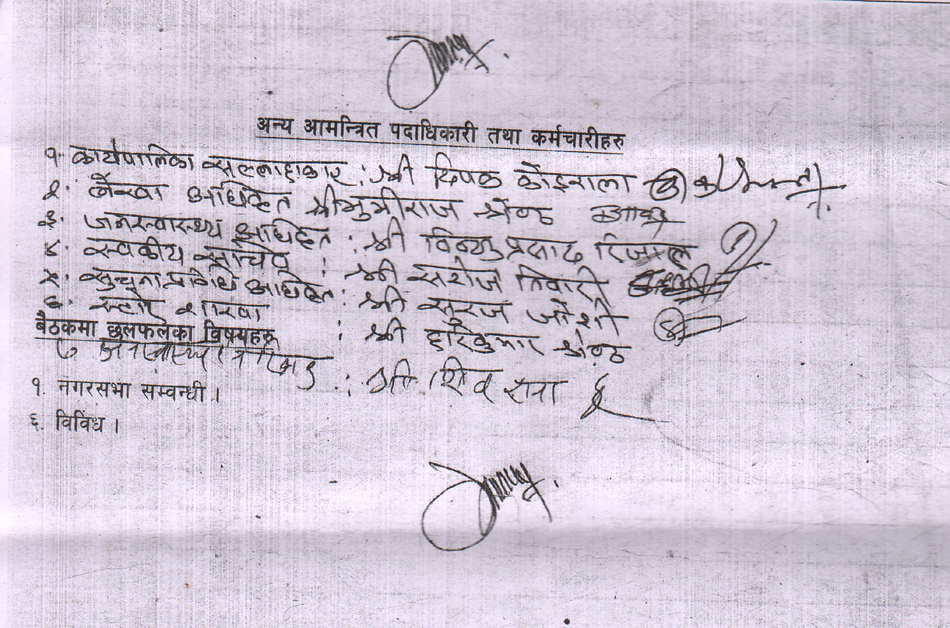 अन्य आमन्त्रित पदाधिकारी तथा कर्मचारीहरु
१. कार्यपालिका सल्लाहाकार : श्री दिपक कोइराला
२. लेखा अधिकृत श्री मुनीराज श्रेष्ठ
३. जनस्वास्थ्य अधिकृत : श्री विष्णु प्रसाद रिजाल
४. स्वकीय सचिव : श्री सरोज तिवारी
५. सुचना प्रविधि अधिकृत : श्री सुरज जोशी
६. स्टोर शाखा : श्री हरिकुमार श्रेष्ठ
बैठकमा छलफलका विषयहरु
७ : श्री शिव
१. नगरसभा सम्वन्धी ।
६. विविध ।